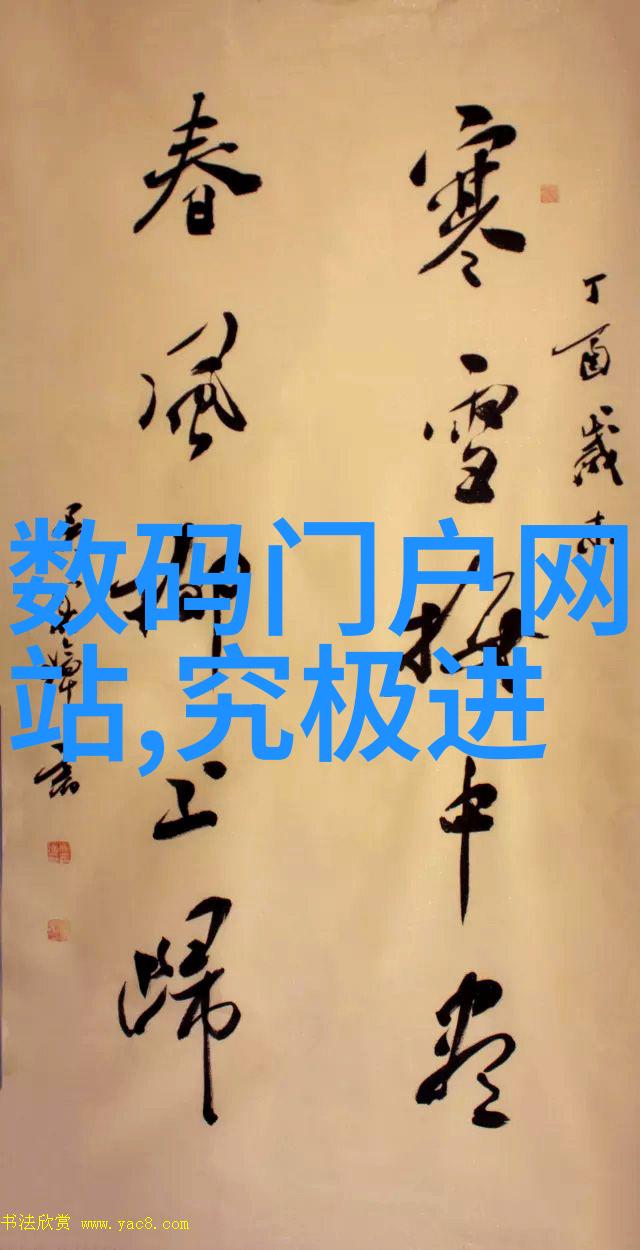 寒雪梅中尽
春风柳上归
丁酉岁
数码门户网
站,究极进
书法欣赏 www.yac8.com